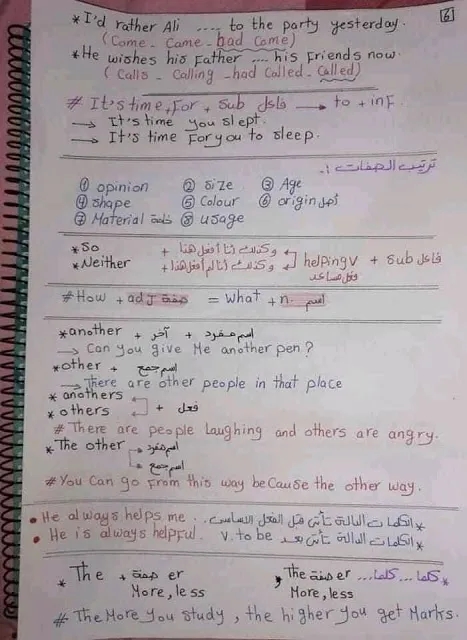 [6]
* I'd rather Ali .... to the party yesterday.
( Come - Came - had Come )
* He wishes his Father .... his Friends now.
( Calls - Calling - had Called - Called )
# It's time + For + Sub فاعل → to + inf
→ It's time you slept.
→ It's time For you to sleep.
ترتيب الصفات :.
① opinion ② size ③ Age
④ shape ⑤ Colour ⑥ origin أصل
⑦ Material خامة ⑧ usage
* So + وكذلك أنا أفعل هذا
* Neither + وكذلك أنا لم أفعل هذا
helping v فعل مساعد + sub فاعل
# How + adj صفة = What + n. اسم
* another + آخر + اسم مفرد
→ Can you give Me another pen ?
* other + اسم جمع
→ There are other people in that place
* anothers
* others + فعل
# There are people laughing and others are angry.
* The other → اسم مفرد
→ اسم جمع
# You Can go From this way beCause the other way.
• He always helps me .. الكلمات الدالة تأتى قبل الفعل الأساسى *
• He is always helpful. v. to be الكلمات الدالة تأتى بعد *
* The + صفة er , The صفة er ... كلما ... كلما *
More, less More, less
# The More you study , the higher you get Marks.